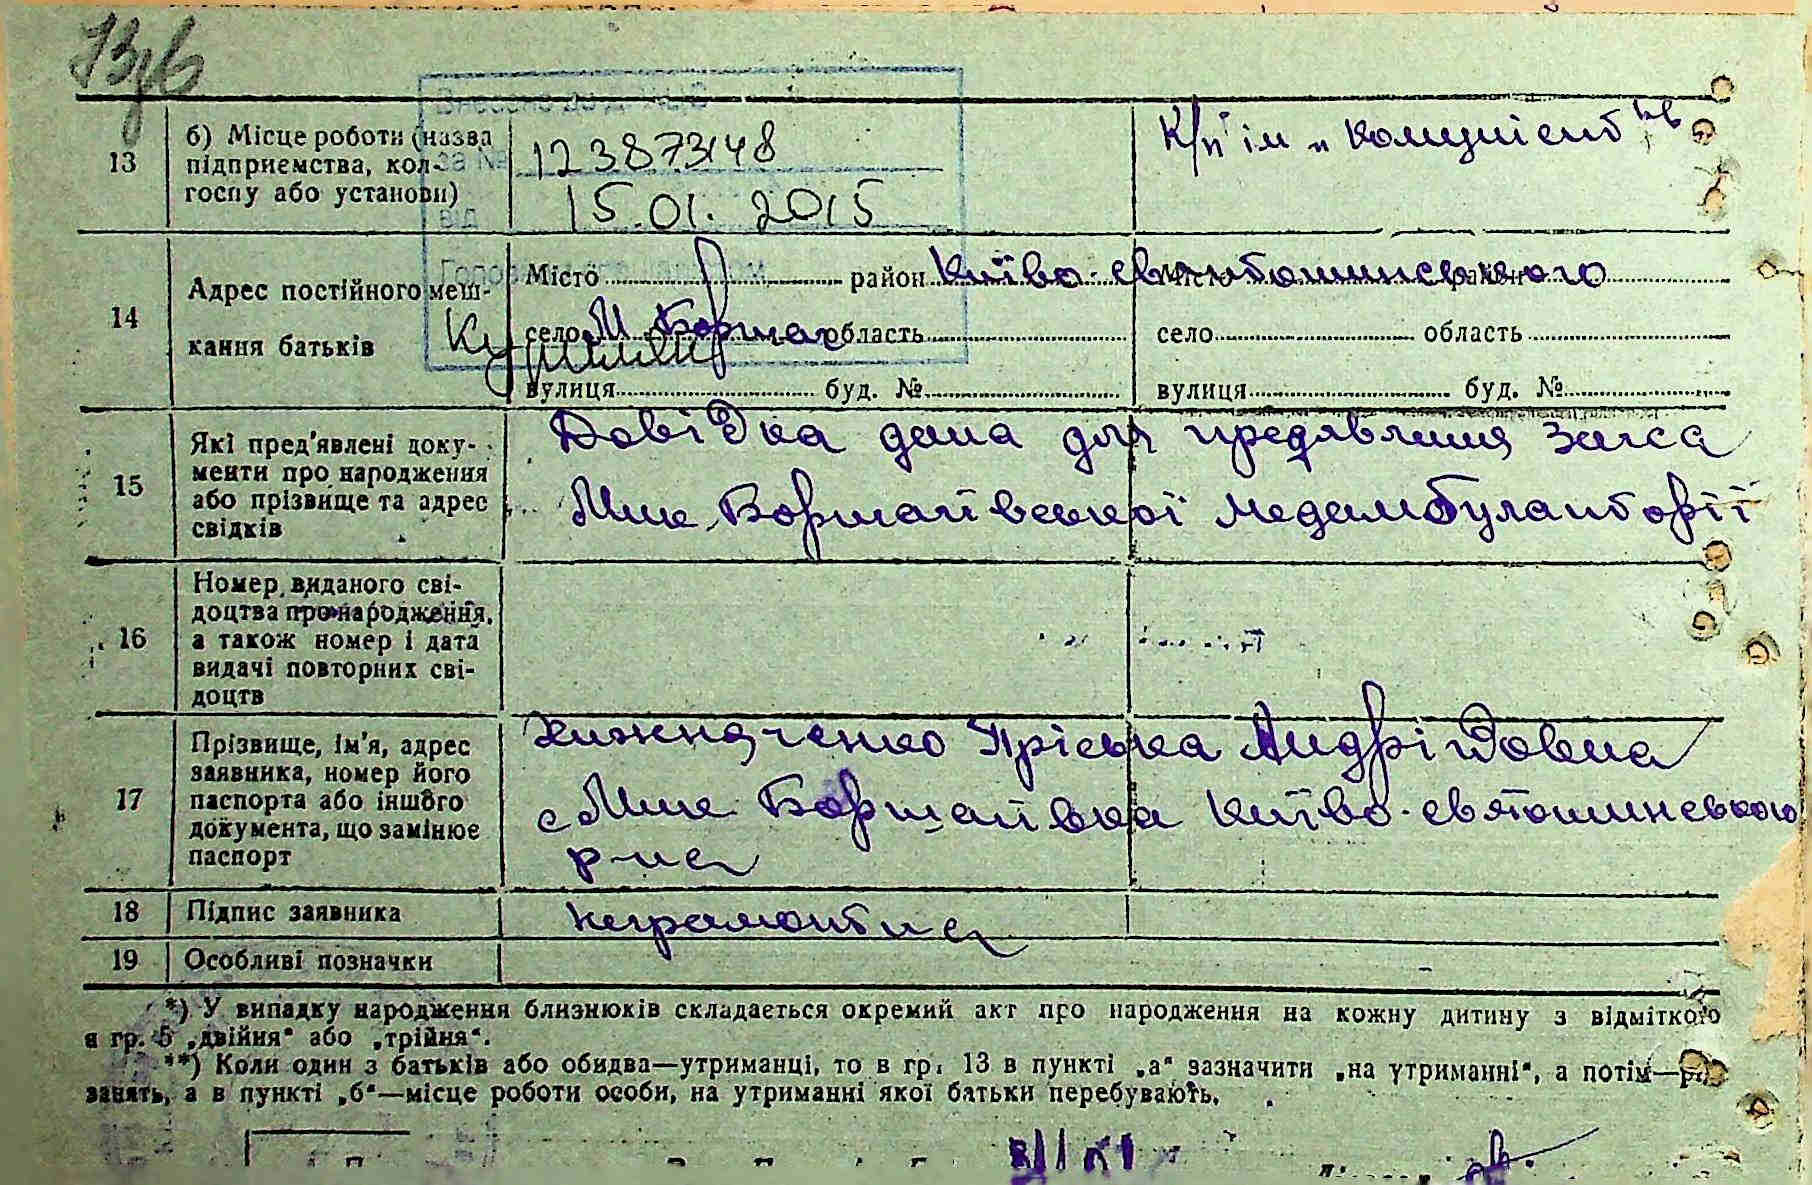 13 б) Місце роботи (назва
підприємства, кол-
госпу або установи)
за №
123873148
від
15.01.2015
К/п ім „Комуніст"
14 Адрес постійного меш-
кання батьків
Місто район Київо-святошинського
село М Борщаг область
вулиця буд. №
Місто район
село область
вулиця буд. №
15 Які пред'явлені доку-
менти про народження
або прізвище та адрес
свідків
Довідка дана для предявлення Загса
Мик. Борщагівської медамбулаторії
16 Номер виданого сві-
доцтва про народження,
а також номер і дата
видачі повторних сві-
доцтв
17 Прізвище, ім'я, адрес
заявника, номер його
паспорта або іншого
документа, що замінює
паспорт
Пріська Андріівна
с Мик Борщагівка Київо-святошинського
р-на
18 Підпис заявника
неграмотна
19 Особливі позначки
*) У випадку народження близнюків складається окремий акт про народження на кожну дитину з відміткою
в гр. 5 „двійня" або „трійня".
**) Коли один з батьків або обидва—утриманці, то в гр. 13 в пункті „а" зазначити „на утриманні", а потім—рід
занять, а в пункті „б"—місце роботи особи, на утриманні якої батьки перебувають.